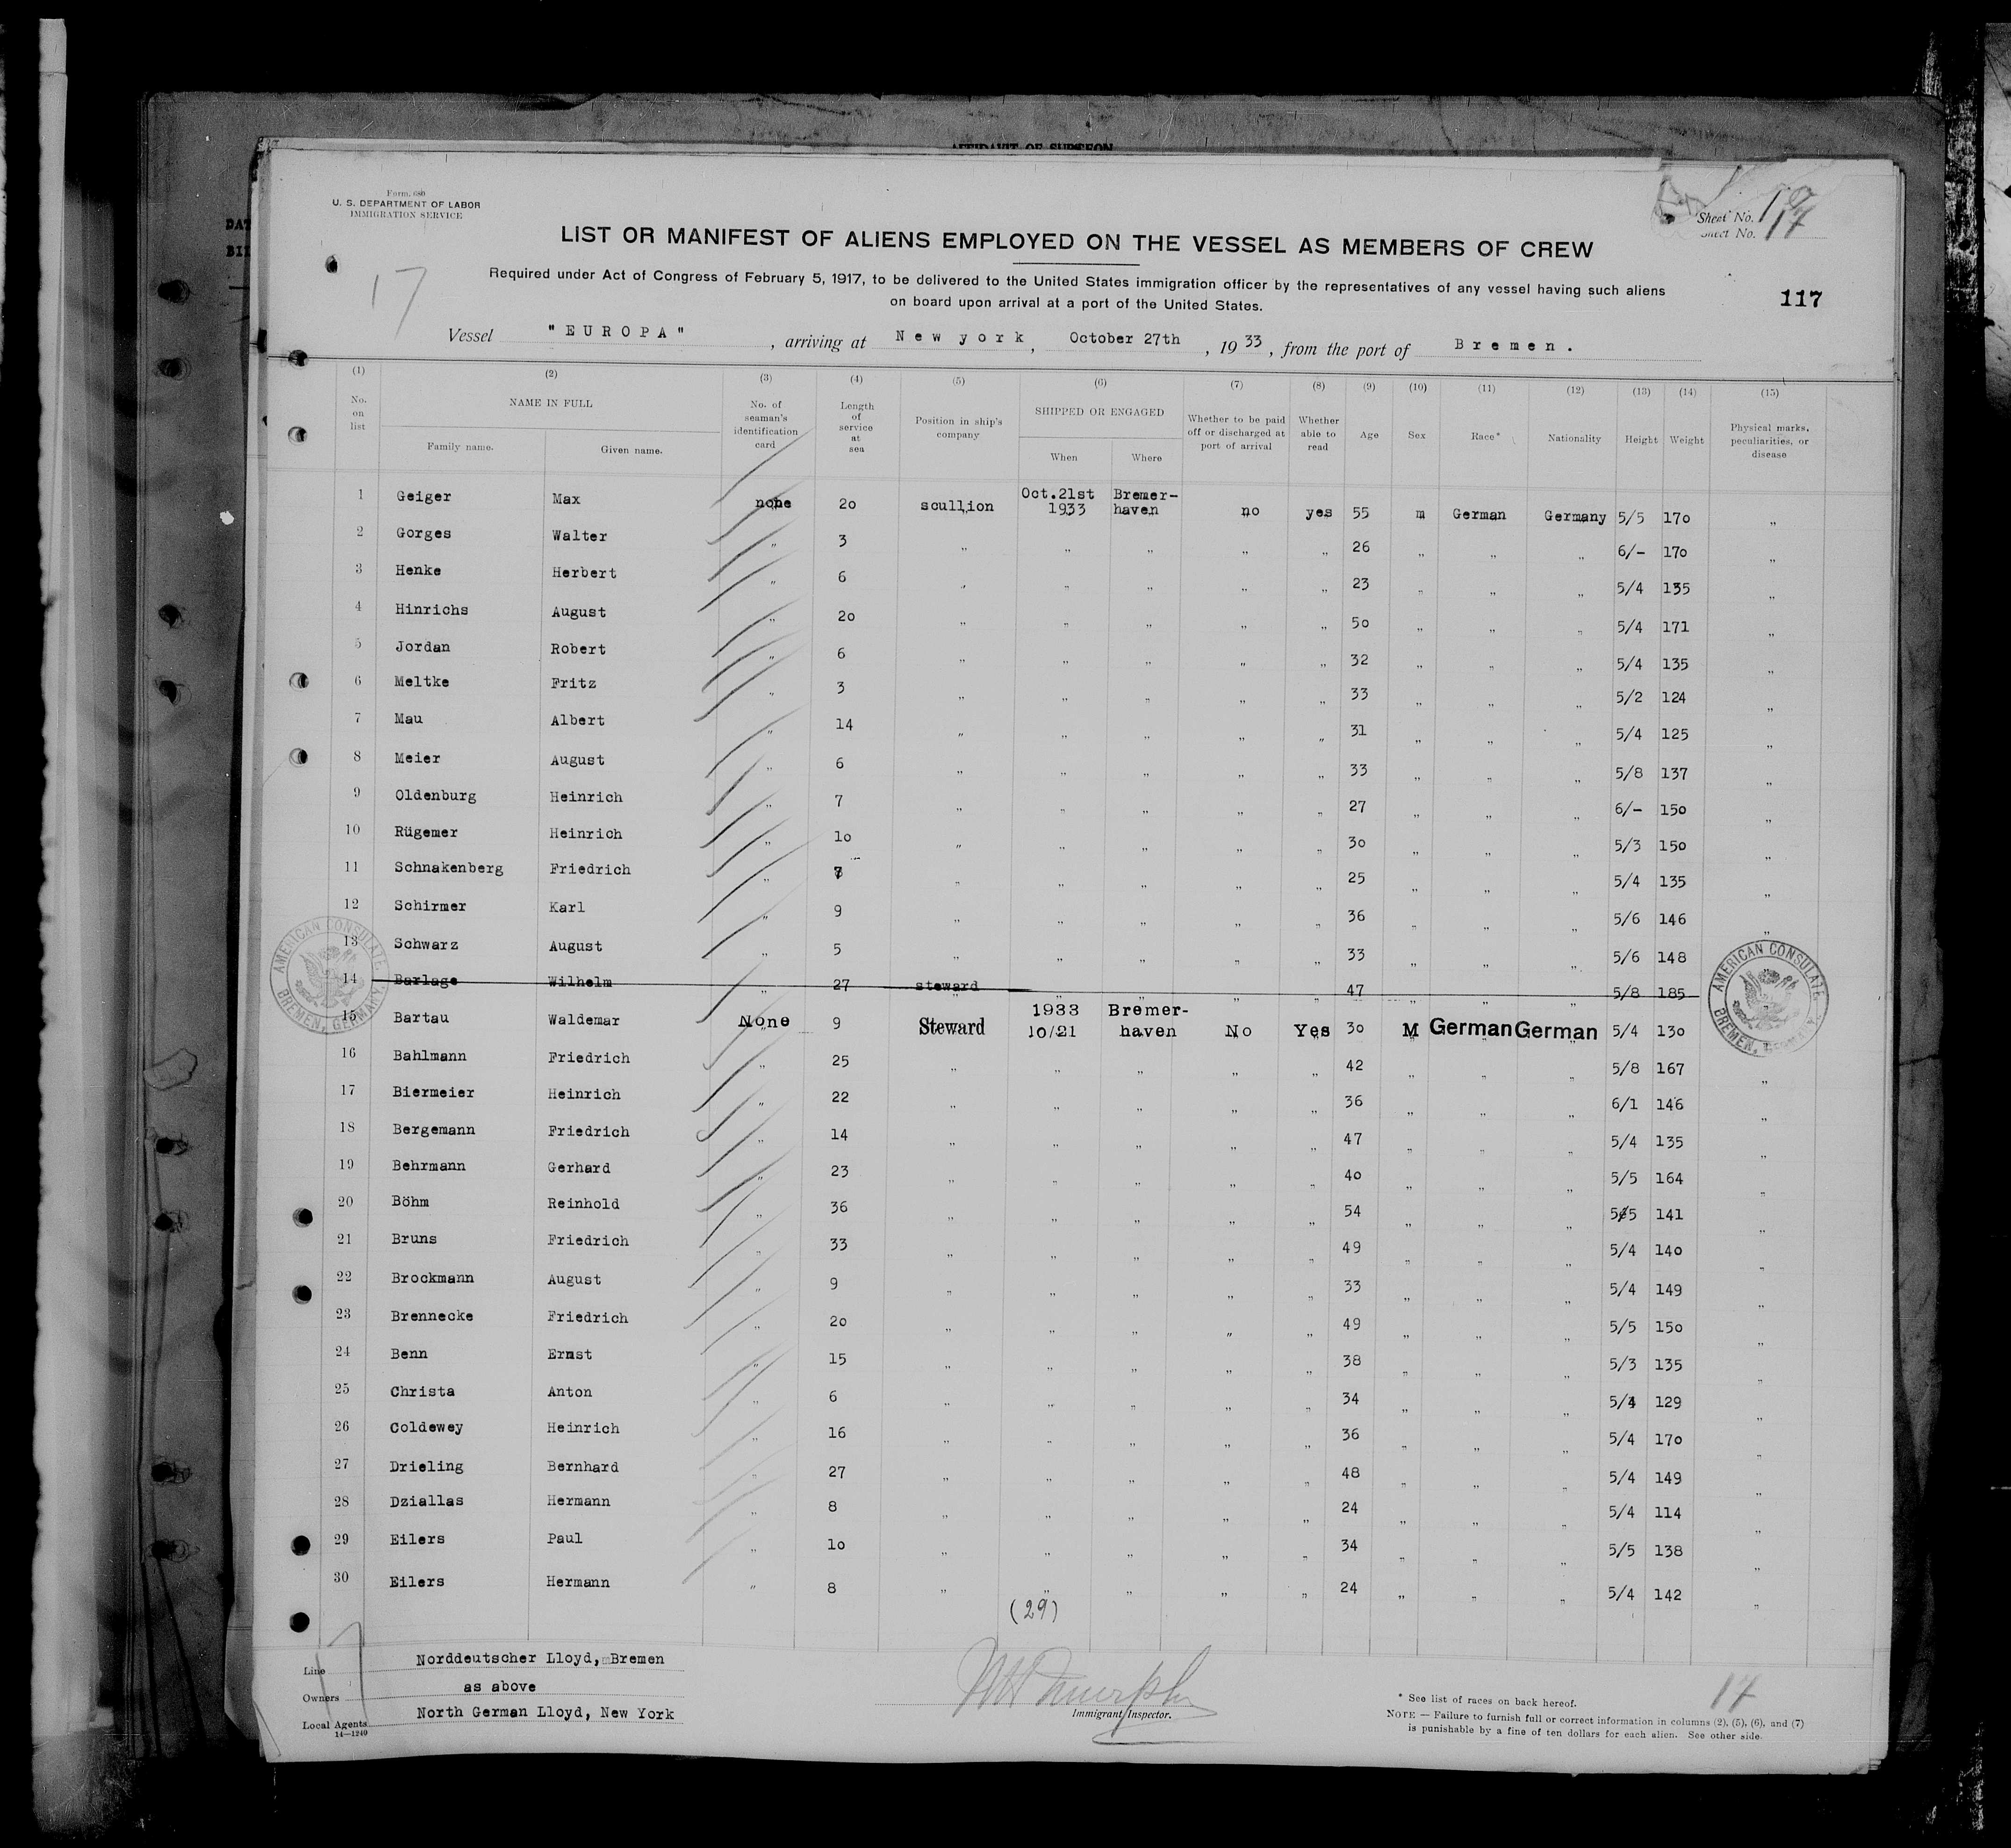 AFFIDAVIT OF SURGEON
Form 680
U. S. DEPARTMENT OF LABOR
IMMIGRATION SERVICE
Sheet No. 17
Sheet No.
LIST OR MANIFEST OF ALIENS EMPLOYED ON THE VESSEL AS MEMBERS OF CREW
17
Required under Act of Congress of February 5, 1917, to be delivered to the United States immigration officer by the representatives of any vessel having such aliens
on board upon arrival at a port of the United States.
117
Vessel "EUROPA", arriving at New york, October 27th, 1933, from the port of Bremen.
(1) (2) (3) (4) (5) (6) (7) (8) (9) (10) (11) (12) (13) (14) (15)
No. on list NAME IN FULL No. of seaman's identification card Length of service at sea Position in ship's company SHIPPED OR ENGAGED Whether to be paid off or discharged at port of arrival Whether able to read Age Sex Race* Nationality Height Weight Physical marks, peculiarities, or disease
Family name. Given name. When Where
1 Geiger Max none 20 scullion Oct.21st 1933 Bremer-haven no yes 55 m German Germany 5/5 170 "
2 Gorges Walter " 3 " " " " " 26 " " " 6/- 170 "
3 Henke Herbert " 6 " " " " " 23 " " " 5/4 135 "
4 Hinrichs August " 20 " " " " " 50 " " " 5/4 171 "
5 Jordan Robert " 6 " " " " " 32 " " " 5/4 135 "
6 Meltke Fritz " 3 " " " " " 33 " " " 5/2 124 "
7 Mau Albert " 14 " " " " " 31 " " " 5/4 125 "
8 Meier August " 6 " " " " " 33 " " " 5/8 137 "
9 Oldenburg Heinrich " 7 " " " " " 27 " " " 6/- 150 "
10 Rügemer Heinrich " 10 " " " " " 30 " " " 5/3 150 "
11 Schnakenberg Friedrich " 7 " " " " " 25 " " " 5/4 135 "
12 Schirmer Karl " 9 " " " " " 36 " " " 5/6 146 "
13 Schwarz August " 5 " " " " " 33 " " " 5/6 148
14 Barlage Wilhelm " 27 steward " " " " 47 " " " 5/8 185
15 Bartau Waldemar None 9 Steward 1933 10/21 Bremer-haven No Yes 30 M German German 5/4 130
16 Bahlmann Friedrich " 25 " " " " " 42 " " " 5/8 167 "
17 Biermeier Heinrich " 22 " " " " " 36 " " " 6/1 146 "
18 Bergemann Friedrich " 14 " " " " " 47 " " " 5/4 135 "
19 Behrmann Gerhard " 23 " " " " " 40 " " " 5/5 164 "
20 Böhm Reinhold " 36 " " " " " 54 " " " 5/5 141 "
21 Bruns Friedrich " 33 " " " " " 49 " " " 5/4 140 "
22 Brockmann August " 9 " " " " " 33 " " " 5/4 149 "
23 Brennecke Friedrich " 20 " " " " " 49 " " " 5/5 150 "
24 Benn Ernst " 15 " " " " " 38 " " " 5/3 135 "
25 Christa Anton " 6 " " " " " 34 " " " 5/4 129 "
26 Coldewey Heinrich " 16 " " " " " 36 " " " 5/4 170 "
27 Drieling Bernhard " 27 " " " " " 48 " " " 5/4 149 "
28 Dziallas Hermann " 8 " " " " " 24 " " " 5/4 114 "
29 Eilers Paul " 10 " " " " " 34 " " " 5/5 138 "
30 Eilers Hermann " 8 " " " " " 24 " " " 5/4 142 "
AMERICAN CONSULATE BREMEN, GERMANY
AMERICAN CONSULATE BREMEN, GERMANY
(29)
17
Line Norddeutscher Lloyd, Bremen
Owners as above
Local Agents North German Lloyd, New York
14—1240
Immigrant Inspector.
17
* See list of races on back hereof.
NOTE — Failure to furnish full or correct information in columns (2), (5), (6), and (7)
is punishable by a fine of ten dollars for each alien. See other side.